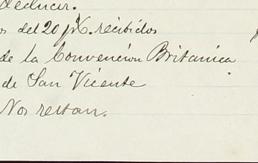 deducir.
del 20 p% recibidos
de la Convención Britanica
de San Vicente
Nos restan.